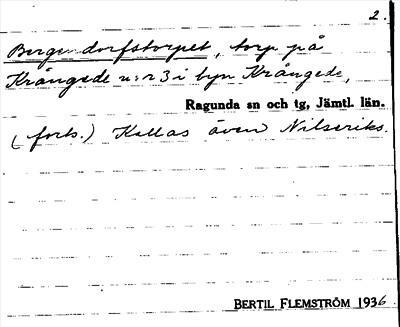 2.
Bergsdorfstorpet, torp på
Krångede n:r 3 i byn Krångede,
Ragunda sn och tg, Jämtl. län.
(forts.) Kallas även Nilseriks.
BERTIL FLEMSTRÖM 1936.